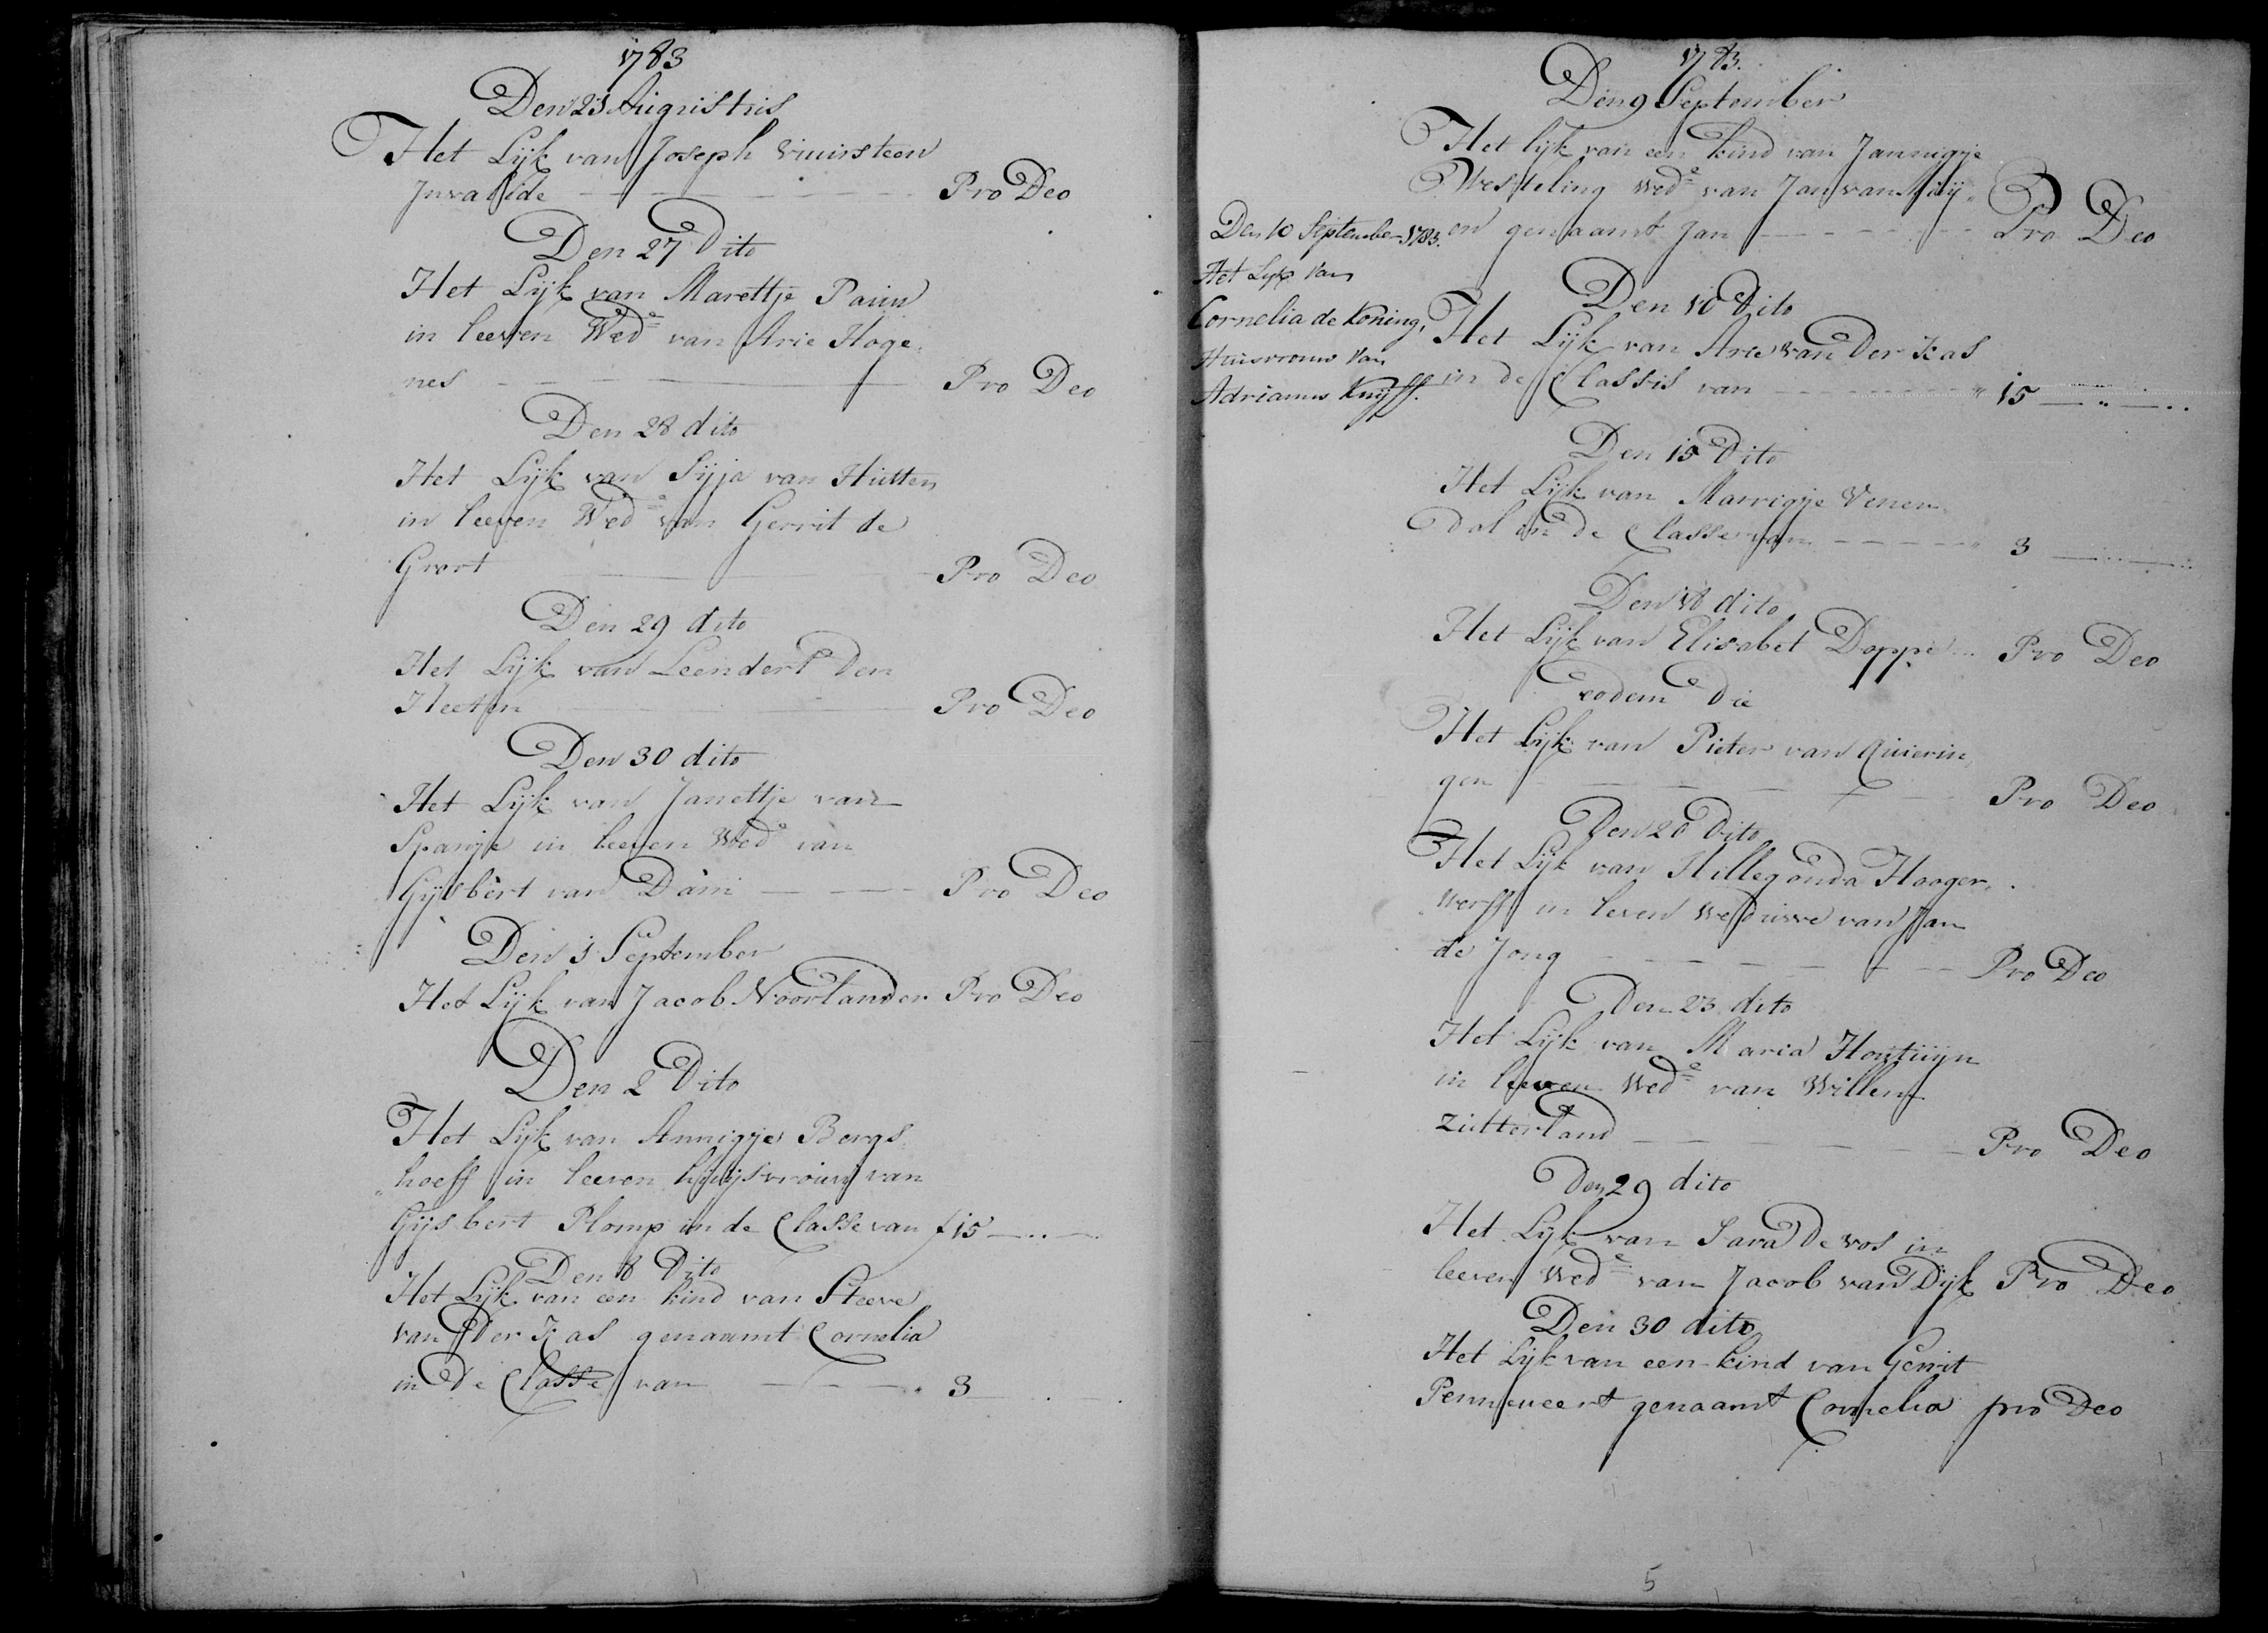 1783
Den 23 Augustus
Het Lijk van Joseph Vuursteen
Invalide Pro Deo
Den 27 Dito
Het Lijk van Marettje Pauw
in leeven Wed.e van Arie Hoge
nes Pro Deo
Den 28 dito
Het Lijk van Sijja van Hutten
in leeven Wed.e van Gerrit de
Groot Pro Deo
Den 29 dito
Het Lijk van Leendert Den
Heeten Pro Deo
Den 30 dito
Het Lijk van Janettje van
Spanje in leeven Wed.e van
Gijsbert van Dam Pro Deo
Den 1 September
Het Lijk van Jacob Noorlander Pro Deo
Den 2 Dito
Het Lijk van Annigje Bergs
hoeff in leeven huijsvrouw van
Gijsbert Plomp in de Classe van f 15
Den 8 Dito
Het Lijk van een kind van Steeve
van Der Kas genaamt Cornelia
in De Classe van 3
1783.
Den 9 September
Het lijk van een kind van Jannigje
Westeling Wed.e van Jan van
en genaamt Jan Pro Deo
Den 10 September 1783.
Het Lijk Van
Cornelia de Koning,
Huisvrouw Van
Adrianus Kuijff.
Den 10 Dito
Het Lijk van Arie van Der Kas
in de Classis van 15
Den 15 Dito
Het Lijk van Marrigje Venen
dal in De Classe van 3
Den 18 dito
Het Lijk van Elisabet Doppe Pro Deo
eodem Die
Het Lijk van Pieter van Quierin
gen Pro Deo
Den 20 Dito
Het Lijk van Hillegonda Hooger
werff in leven Weduwe van Jan
de Jong Pro Deo
Den 23 dito
Het Lijk van Maria Houtuijn
in leeven Wed.e van Willem
Zutterland Pro Deo
Den 29 dito
Het Lijk van Sara De vos in
leeven Wed.e van Jacob van Dijk Pro Deo
Den 30 dito
Het Lijk van een kind van Gerrit
Penneweert genaamt Cornelia pro Deo
5